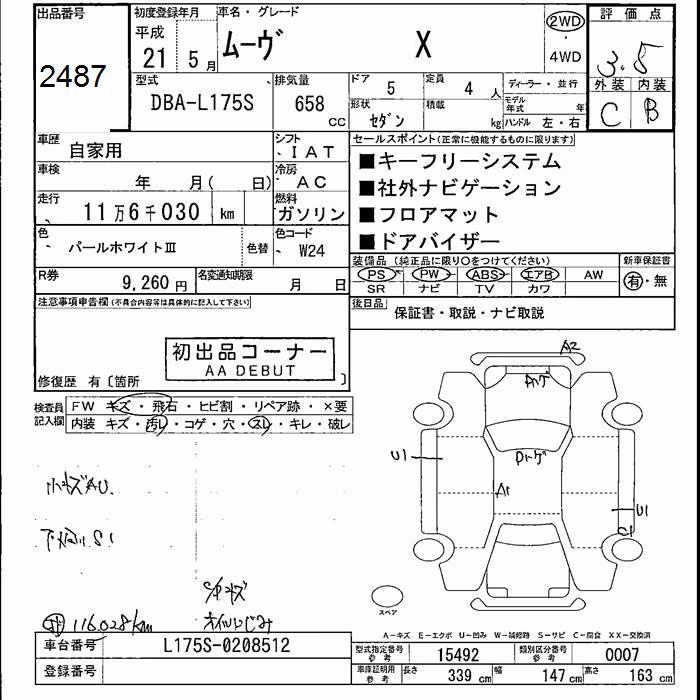 出品番号
2487
初度登録年月
平成
21年 5月
車名・グレード
ムーヴ X
2WD
・
4WD
評価点
3.5
外装 内装
C B
型式
DBA-L175S
排気量
658 CC
ドア 5
定員 4 人
ディーラー・並行
形状 セダン
積載 kg
モデル年式 年
ハンドル 左・右
車歴
自家用
シフト
IAT
車検
年 月( 日)
冷房
AC
走行
11万6千030 km
燃料
ガソリン
色
パールホワイトⅢ
色替
色コード
W24
R券
9,260円
名変通知期限
月 日
セールスポイント(正常に機能するものに限ります)
■キーフリーシステム
■社外ナビゲーション
■フロアマット
■ドアバイザー
装備品(純正品に限り○をつけてください)
PS PW ABS エアB AW
SR ナビ TV カワ
新車保証書
有・無
後日品
保証書・取説・ナビ取説
注意事項申告欄(不具合内容等は具体的に記入して下さい)
初出品コーナー
AA DEBUT
修復歴 有〔箇所 〕
検査員
記入欄
FW キズ・飛石・ヒビ割・リペア跡・×要
内装 キズ・汚レ・コゲ・穴・スレ・キレ・破レ
A2
U1
A1
U1
C1
小キズAU
下廻リS1
オイルにじみ
116,028km
スペア
A-キズ E-エクボ U-凹み W-補修跡 S-サビ C-腐食 XX-交換済
車台番号
L175S-0208512
登録番号
型式指定番号
参考
15492
類別区分番号
参考
0007
車庫証明用
参考
長さ 339 cm
幅 147 cm
高さ 163 cm